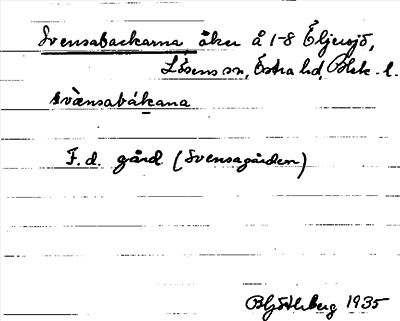 Svensabackarna åker å 1-8 Éljersjö,
Lösens sn, Östra hd, Blek. l.
svä̀nsabákana
F. d. gård (Svensagården)
1935